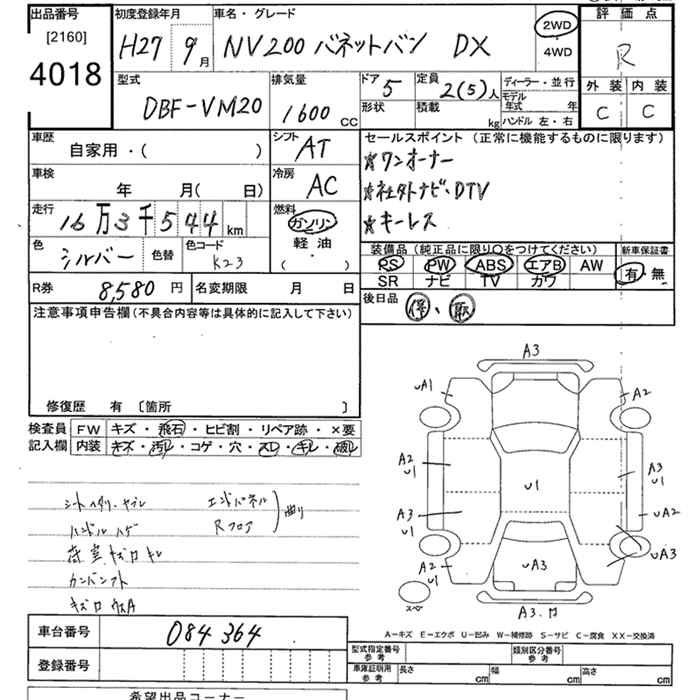 出品番号 初度登録年月 車名・グレード 評価点
[2160] 4018 H27 9月 NV200 バネットバン DX 2WD 4WD R
型式 排気量 ドア 定員 ディーラー・並行 外装 内装
DBF-VM20 1600 CC 5 2(5)人 モデル年式 年 C C
形状 積載 kg ハンドル 左・右
車歴 シフト セールスポイント (正常に機能するものに限ります)
自家用・( ) AT ★ワンオーナー
車検 冷房
年 月( 日) AC ★社外ナビ・DTV
走行 燃料
16万3千544km ガソリン ★キーレス
軽油
・( )
色 色替 色コード 装備品 (純正品に限り○をつけてください) 新車保証書
シルバー K23 PS PW ABS エアB AW 有・無
SR ナビ TV カワ
R券 8,580円 名変期限 月 日 後日品 保、取
注意事項申告欄 (不具合内容等は具体的に記入して下さい)
修復歴 有 〔箇所 〕
検査員 FW キズ・飛石・ヒビ割・リペア跡・×要
記入欄 内装 キズ・汚レ・コゲ・穴・スレ・キレ・破レ
A3
UA1 A2
A2 U1 U1 A3 U1
A3 U1 UA2
A2 U1 UA3 UA3
スペ
A3.
シートヘタリ・ヤブレ エンドパネル
ハンドルハゲ Rフロア 曲り
荷室キズ
084364
車台番号
登録番号
A-キズ E-エクボ U-凹み W-補修跡 S-サビ C-腐食 XX-交換済
型式指定番号 参考 類別区分番号 参考
車庫証明用 参考 長さ cm 幅 cm 高さ cm
希望出品コーナー